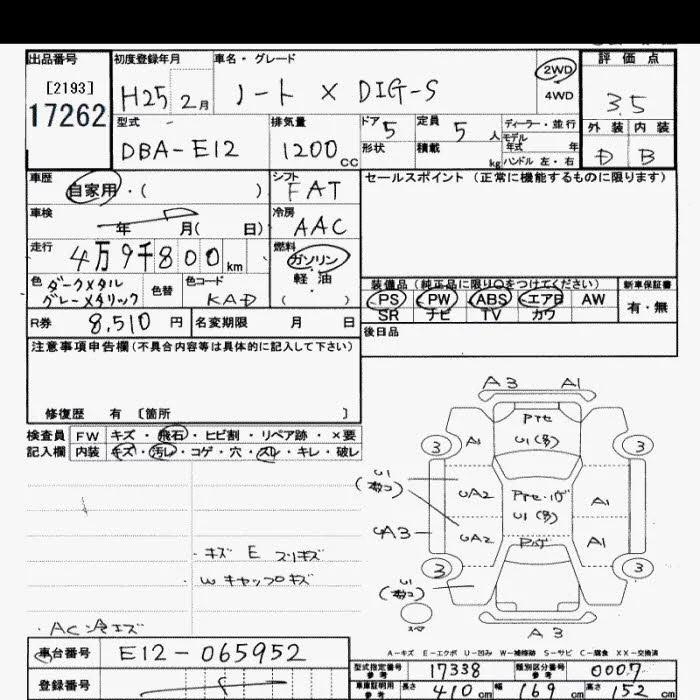 出品番号
[2193]
17262
初度登録年月
H25 2月
車名・グレード
ノート X DIG-S
2WD
4WD
評価点
3.5
外装 内装
D B
型式
DBA-E12
排気量
1200cc
ドア 5
形状
定員 5 人
積載 kg
ディーラー・並行
モデル年式 年
ハンドル 左・右
車歴
自家用・( )
シフト
FAT
セールスポイント (正常に機能するものに限ります)
車検
年 月( 日)
冷房
AAC
走行
4万9千800km
燃料
ガソリン
軽・油
( )
色 ダークメタル
グレーメタリック
色替
色コード
KAD
装備品 (純正品に限り○をつけてください)
PS PW ABS エアB AW
SR ナビ TV カワ
新車保証書
有・無
R券 8,510 円
名変期限 月 日
後日品
注意事項申告欄(不具合内容等は具体的に記入して下さい)
修復歴 有 [箇所 ]
検査員
記入欄
FW キズ・飛石・ヒビ割・リペア跡・×要
内装 キズ・汚レ・コゲ・穴・スレ・キレ・破レ
・キズ E スリキズ
・W キャップキズ
・AC冷エズ
A3 A1
U1(多)
3 A1 3
UA2 U1(多) A1
A3 UA2 A1
3 3
U1
A3
A-キズ E-エクボ U-凹み W-補修跡 S-サビ C-腐食 XX-交換済
車台番号 E12-065952
登録番号
型式指定番号 参考 17338
類別区分番号 参考 0007
車庫証明用 参考 長さ 410cm 幅 169cm 高さ 152cm